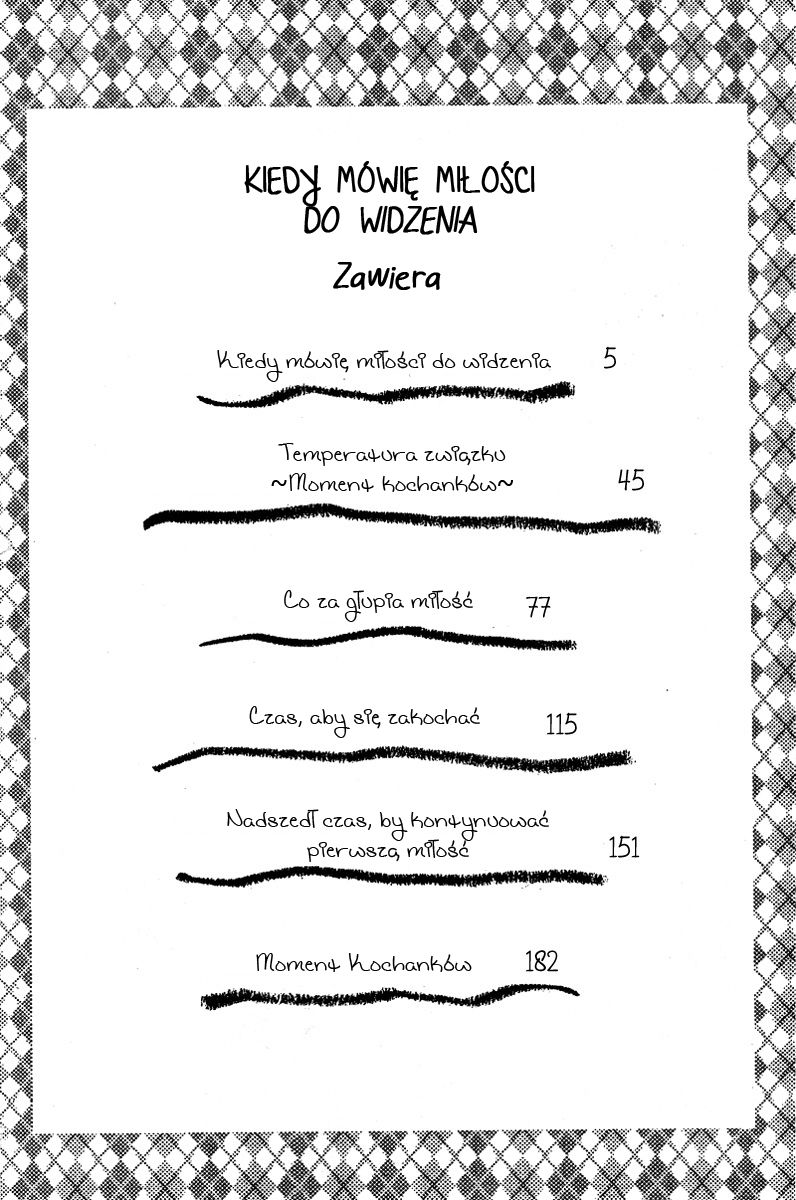 KIEDY MÓWIĘ MIŁOŚCI
DO WIDZENIA
Zawiera
Kiedy mówię miłości do widzenia 5
Temperatura związku
~Moment kochanków~ 45
Co za głupia miłość 77
Czas, aby się zakochać 115
Nadszedł czas, by kontynuować
pierwszą miłość 151
Moment Kochanków 182